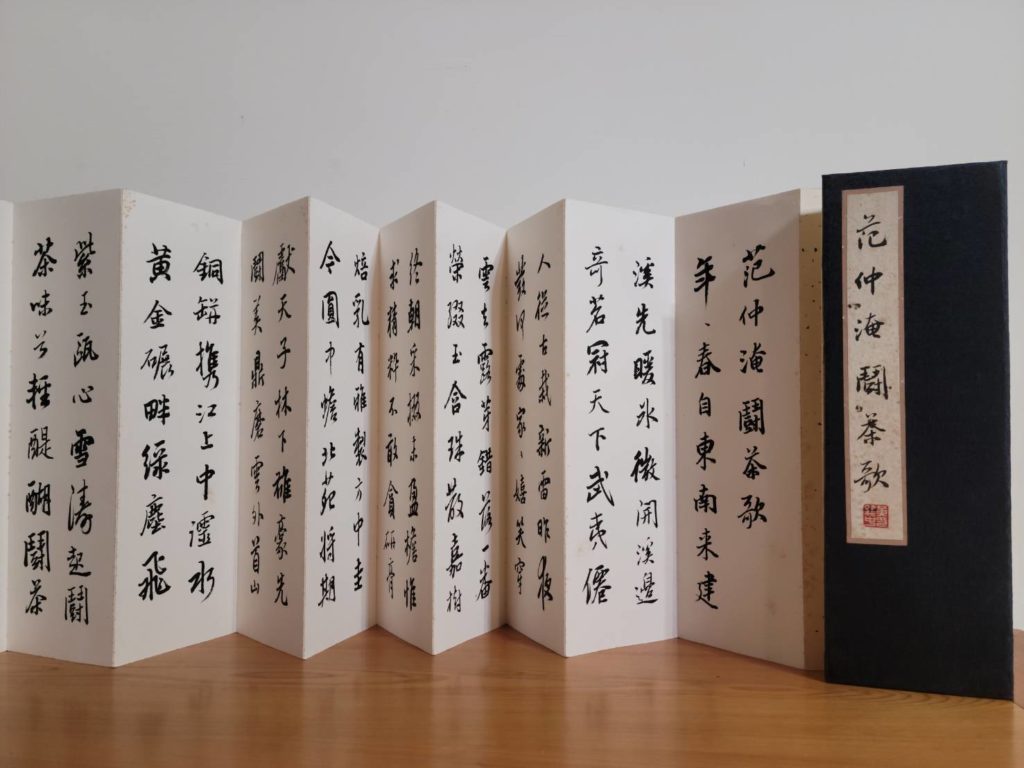 范仲淹鬪茶歌
范仲淹鬪茶歌
年、春自東南来建
溪先暖氷微開溪邊
奇茗冠天下武夷僊
人從古栽新雷昨夜
發何處家、嬉笑穿
雲去露芽錯落一番
榮綴玉含珠散嘉樹
終朝采掇未盈襜惟
求精粹不敢貪研膏
焙乳有雅製方中圭
令圓中蟾北苑將期
獻天子林下雄豪先
鬪美鼎磨雲外首山
銅缾携江上中澪水
黃金碾畔綠塵飛
紫玉甌心雪濤起鬪
茶味兮輕醍醐鬪茶